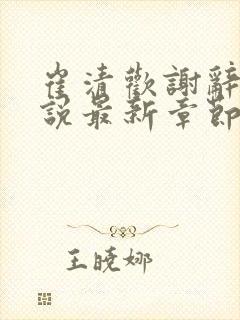 崔清歡謝辭
說最新章節
王曉娜